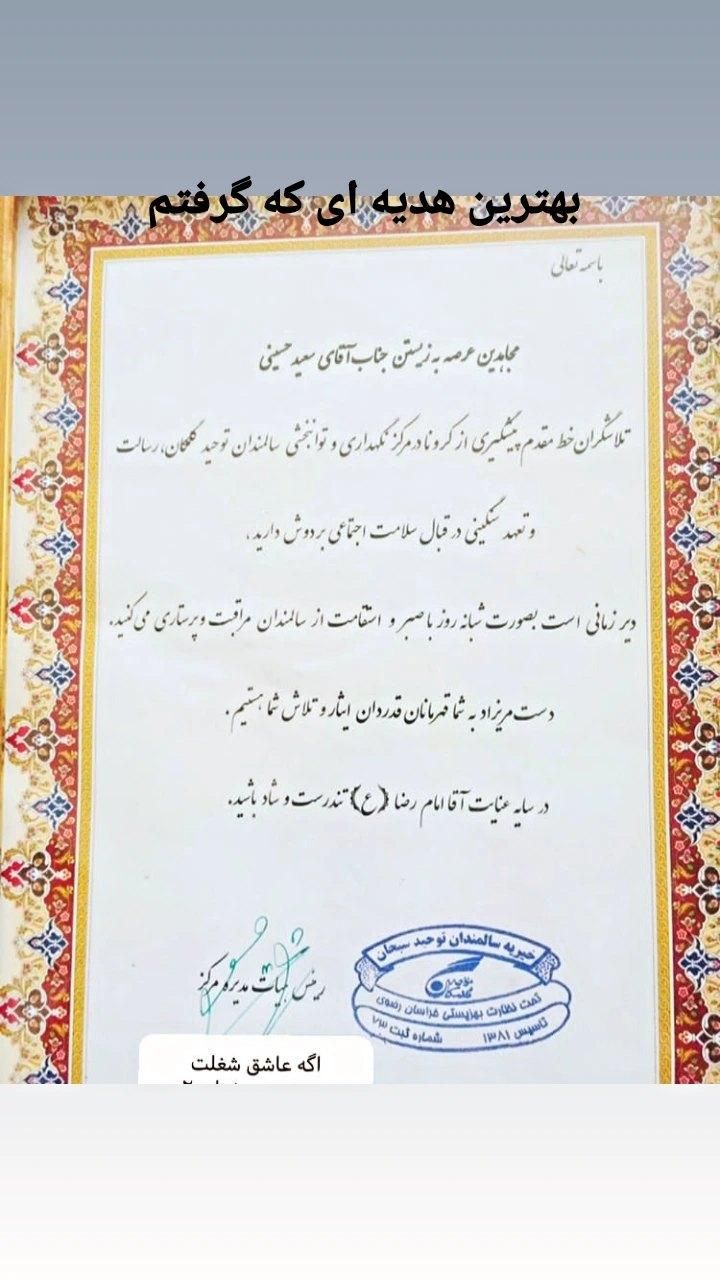 بهترین هدیه ای که گرفتم
باسمه تعالی
مجاهدین عرصه به زیستن جناب آقای سعید حسینی
تلاشگران خط مقدم پیشگیری از کرونا در مرکز نگهداری و توانبخشی سالمندان توحید گلمکان، رسالت
و تعهد سنگینی در قبال سلامت اجتماعی بر دوش دارید،
دیر زمانی است بصورت شبانه روز با صبر و استقامت از سالمندان مراقبت و پرستاری می کنید.
دست مریزاد به شما قهرمانان قدردان ایثار و تلاش شما هستیم.
در سایه عنایت آقا امام رضا (ع) تندرست و شاد باشید.
رئیس هیات مدیره مرکز
خیریه سالمندان توحید سبحان
گلمکان
تحت نظارت بهزیستی خراسان رضوی
تاسیس ۱۳۸۱ شماره ثبت ۷۳
اگه عاشق شغلت